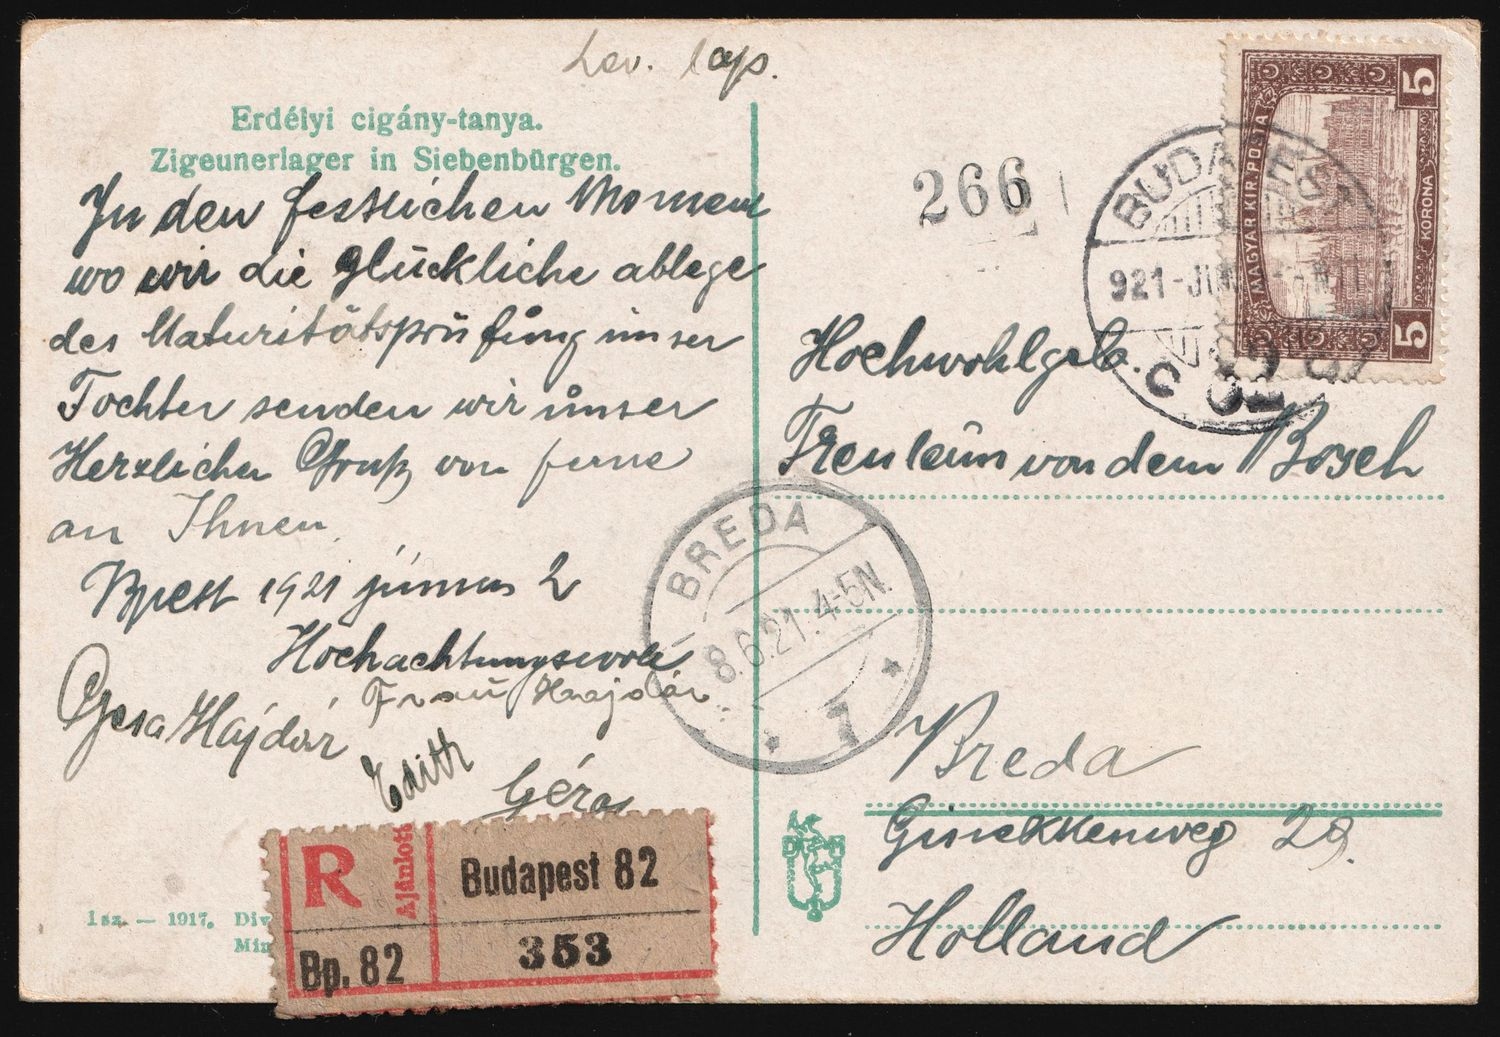 Lev. lap.
Erdélyi cigány-tanya.
Zigeunerlager in Siebenbürgen.
In den festlichen Momen
wo wir die glückliche ablege
des Maturitätsprüfung unser
Tochter senden wir unser
Herzlichen Gruß von ferne
an Ihnen.
Bpest 1921 június 2
Hochachtungsvoll
Frau Hajdár
Geza Hajdár
Edith
Géza
R
Ajánlott
Budapest 82
Bp. 82
353
1 sz. — 1917. Div
Min
266
5
MAGYAR KIR. POSTA
KORONA
5
BUDAPEST
921-JUN
Hochwohlgeb.
Freuleün von dem Bosch
BREDA
8.6.21.4-5N.
Breda
Ginekkenweg 29.
Holland